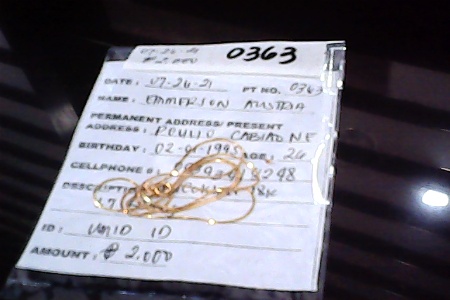 07-26-21
₱2,000
0363
DATE: 07-26-21 PT NO. 0363
NAME: EMMERSON AUSTRIA
PERMANENT ADDRESS/ PRESENT
ADDRESS: CABIAO NE
BIRTHDAY: 1995 AGE: 26
CELLPHONE #: 8248
DESCRIPTION 18K
ID: UMID ID
AMOUNT: ₱ 2,000